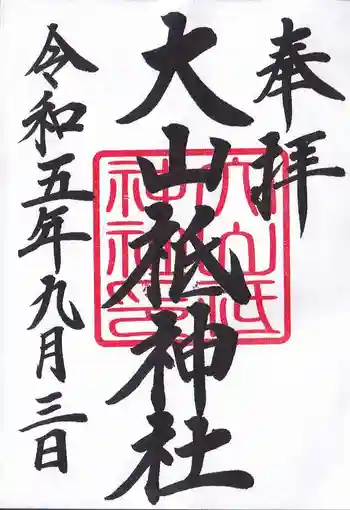 奉拝
大山祇神社
令和五年九月三日
大山祇神社印